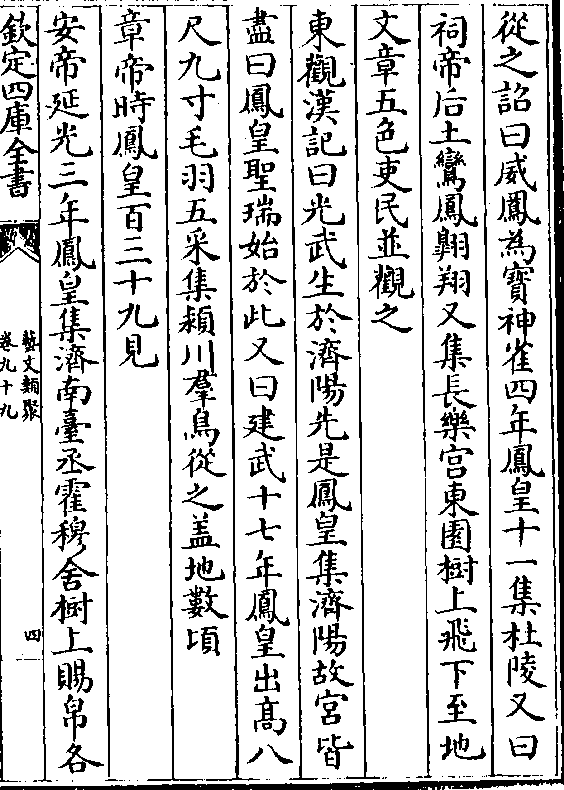 從之詔曰威鳳為寶神雀四年鳳皇十一集杜陵又曰
祠帝后土鸞鳳翺翔又集長樂宫東園樹上飛下至地
文章五色吏民並觀之
東觀漢記曰光武生於濟陽先是鳳皇集濟陽故宫皆
盡曰鳳皇聖瑞始於此又曰建武十七年鳳皇出髙八
尺九寸毛羽五采集潁川羣鳥從之盖地數頃
章帝時鳳皇百三十九見
安帝延光三年鳳皇集濟南臺丞霍穆舍樹上賜帛各
欽定四庫全書
藝文類聚
卷九十九
四